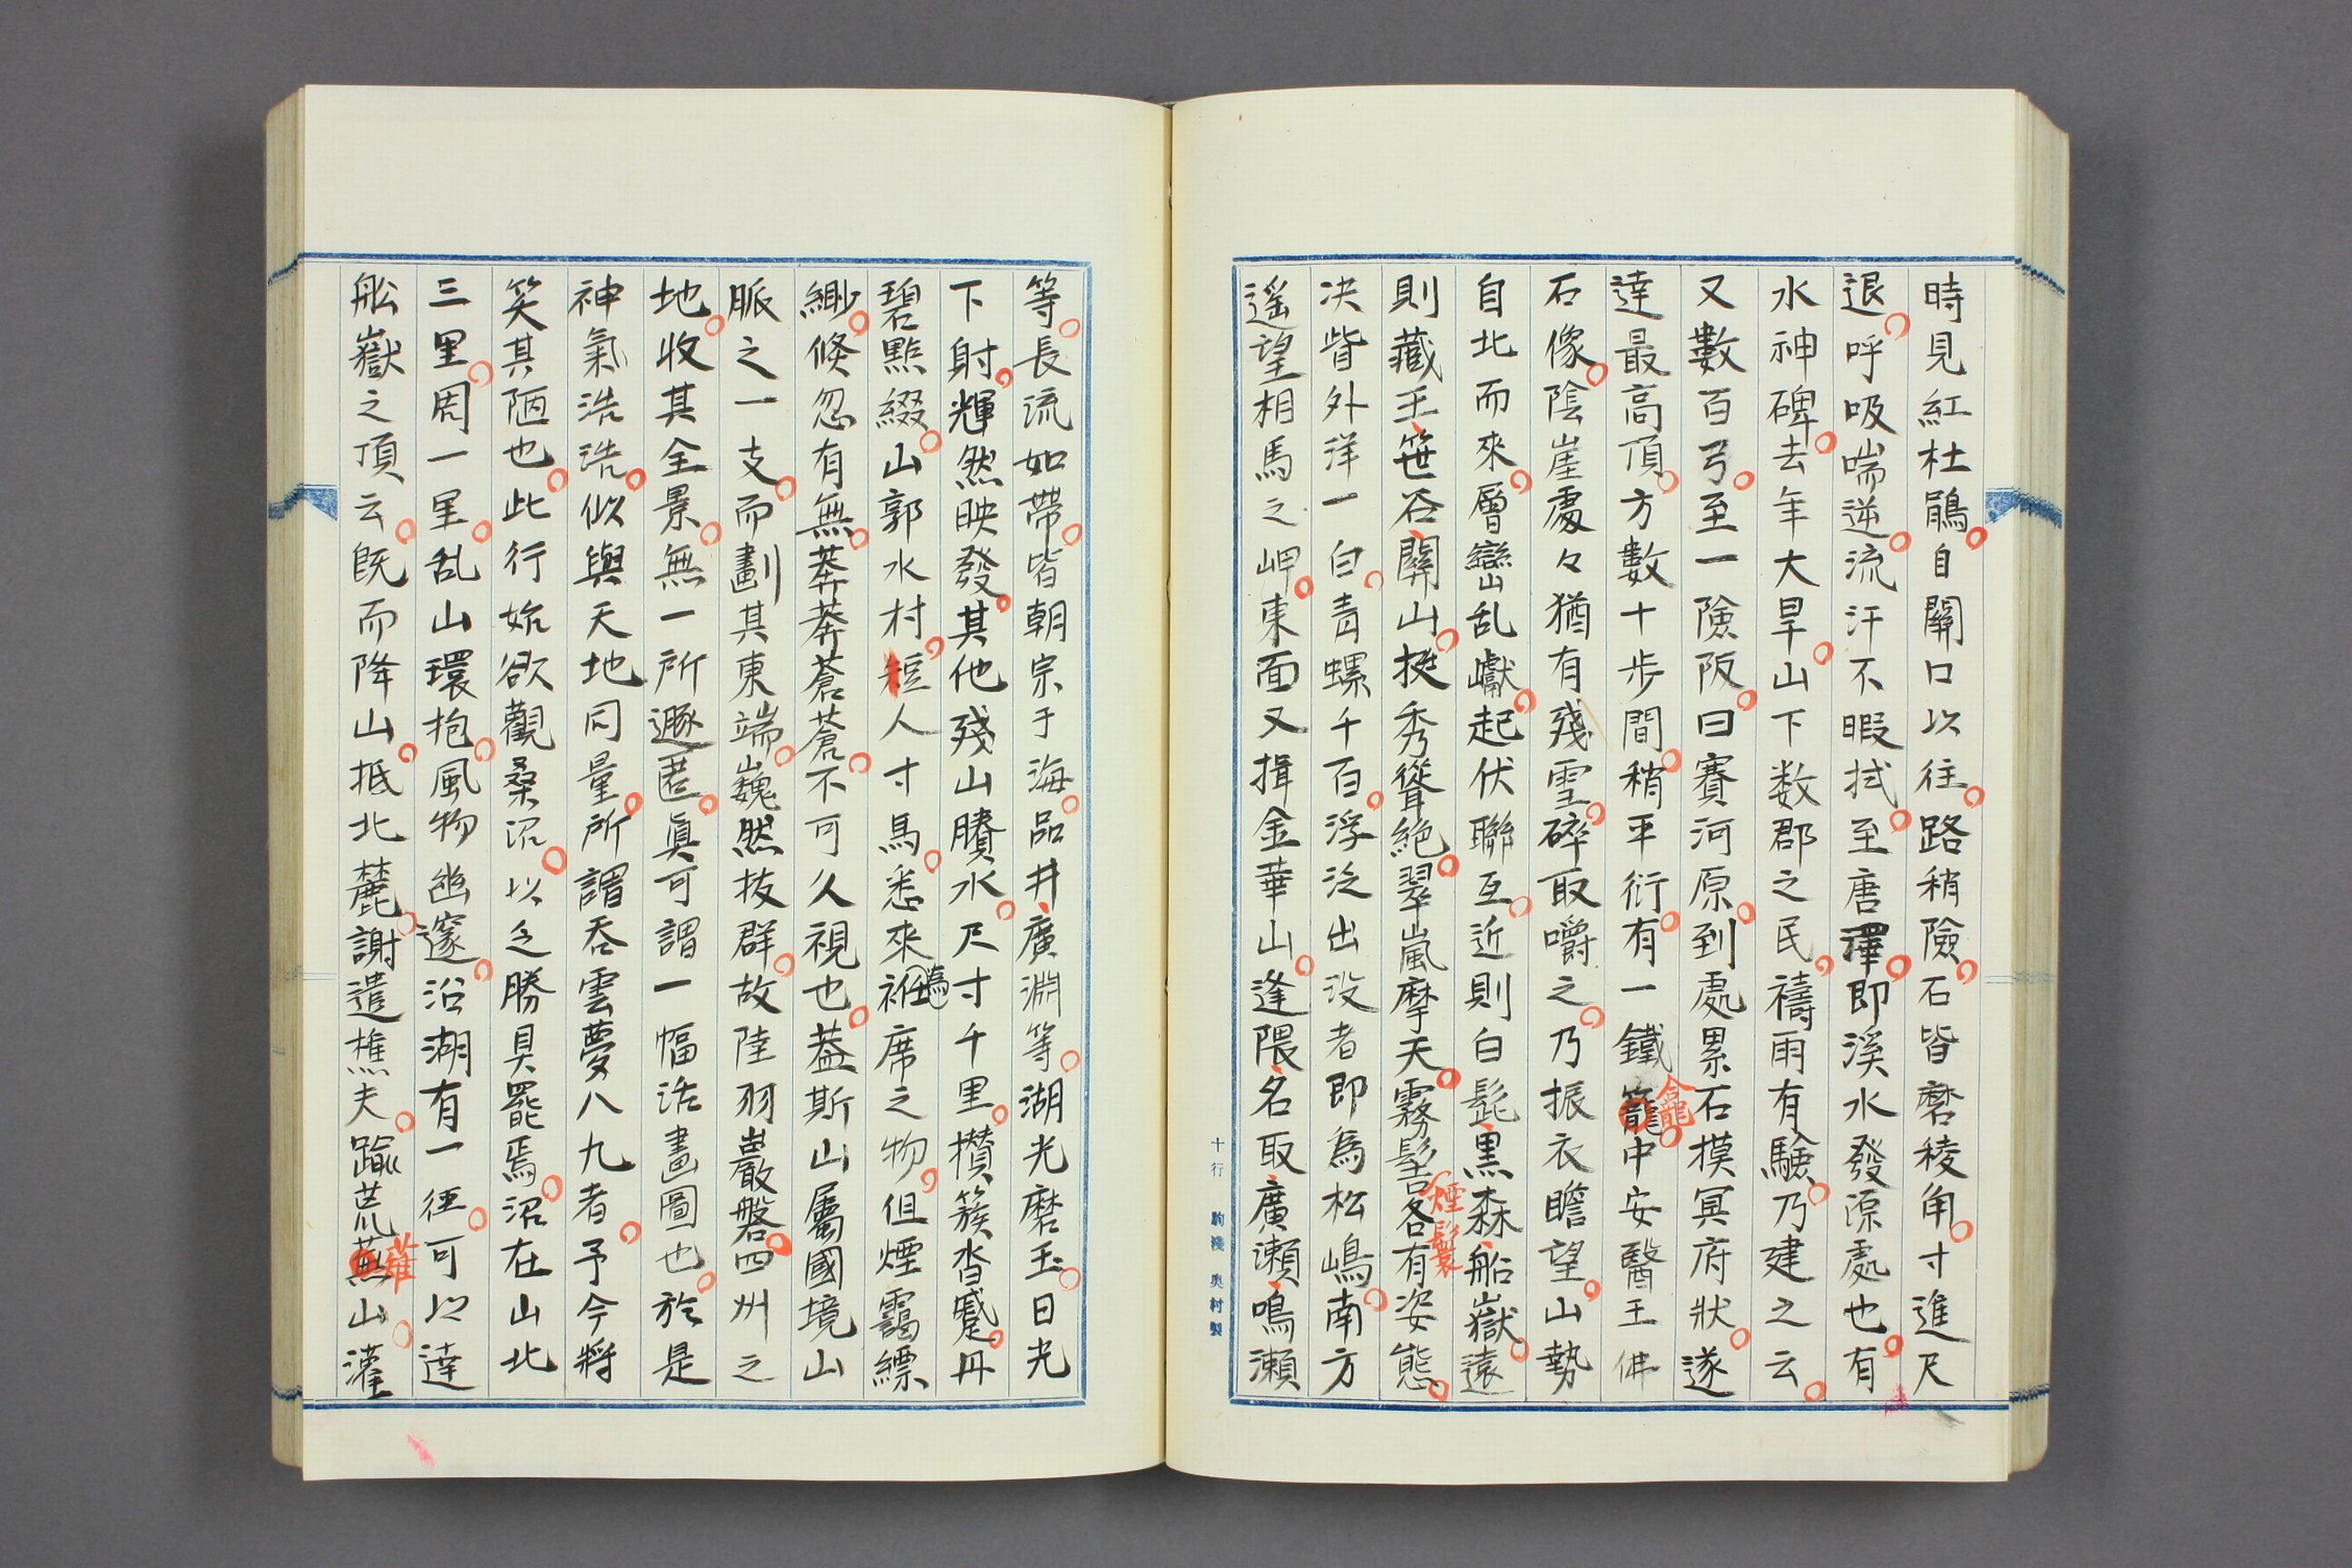 時見紅杜鵑。自關口以往。路稍險。石皆磨稜角。寸進尺
退。呼吸喘逆。流汗不暇拭。至唐澤。即溪水發源處也。有
水神碑。去年大旱。山下数郡之民。禱雨有驗。乃建之云。
又數百弓。至一險阪。曰賽河原。到處累石摸冥府狀。遂
達最高頂。方數十步間。稍平衍。有一鐵籠中安醫王佛
龕
石像。陰崖處々猶有殘雪。碎取嚼之。乃振衣瞻望。山勢
自北而來。層巒乱巘。起伏聯互。近則白髭、黒森、船嶽。遠
則藏王、笹谷、關山。挺秀聳絶。翠嵐摩天。霧髻各有姿態。
煙鬟
决眥外洋一白。青螺千百。浮泛出没者即為松嶋。南方
遥望相馬之岬。東面又揖金華山。逢隈、名取、廣瀬、鳴瀬
十行 奥村製
等。長流如帶。皆朝宗于海。品井、廣淵等。湖光磨玉。日光
下射。輝然映發。其他殘山賸水。尺寸千里。攅簇沓蹙。丹
碧點綴。山郭水村。短人寸馬。悉來袵席之物。但煙靄縹
緲。倏忽有無。莽莽蒼蒼。不可久視也。葢斯山屬國境山
脈之一支。而劃其東端。巍然抜群。故陸羽巖磐四州之
地。收其全景。無一所遯匿。眞可謂一幅活畫圖也。於是
神氣浩浩。似與天地同量。所謂呑雲夢八九者。予今將
笑其陋也。此行始欲觀桑沼。以乏勝具罷焉。沼在山北
三里。周一里。乱山環抱。風物幽邃。沿湖有一徑。可以達
舩嶽之頂云。既而降山。抵北麓。謝遣樵夫。踰荒蕪山。灌
薙